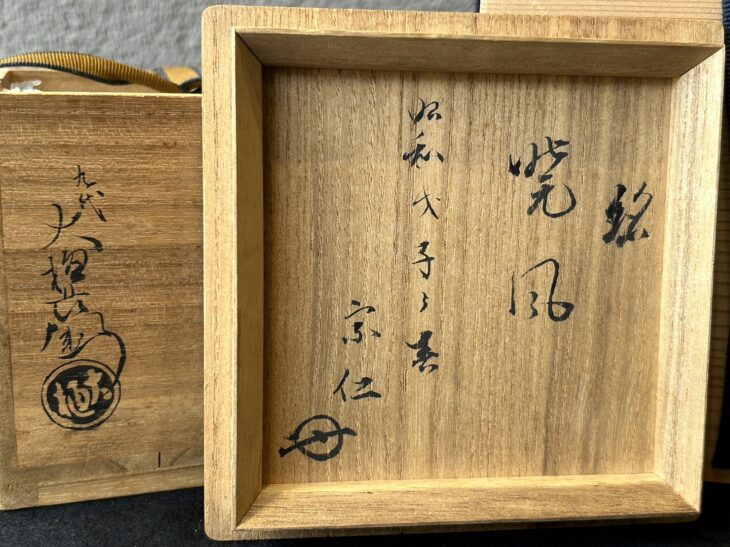 銘
暁風
昭和戊子之春
宗仁
九代
大樋長左衛門